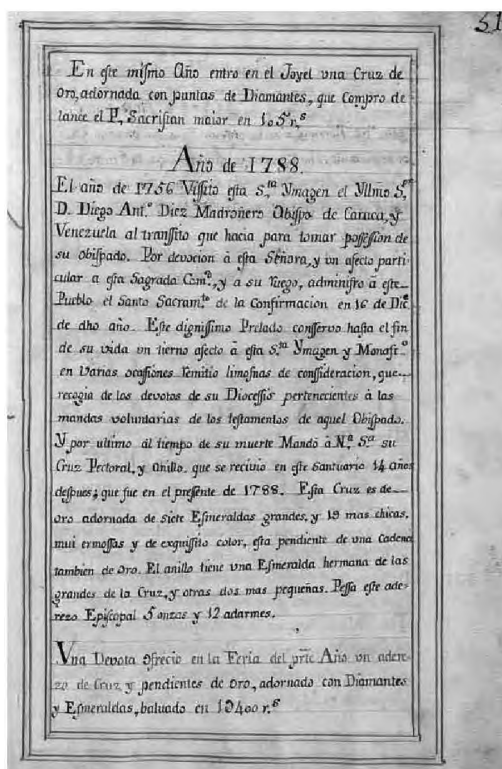 51
En este mismo Año entro en el Joyel vna Cruz de
oro, adornada con puntas de Diamantes, que compro de
lance el P. Sacristan maior en
Año de 1788.
El año de 1756 Vissito esta S.ta Ymagen el Yllmo S.or
D. Diego Ant.o Diez Madroñero Obispo de Caraca, y
Venezuela al transsito que hacia para tomar possession de
su obispado. Por devocion â esta Señora, y un afecto parti-
cular a esta Sagrada Com.d, y a su ruego, administro â este
Pueblo el Santo Sacram.to de la Confirmacion en 16 de Dic.e
de dho año. Este dignissimo Prelado conservo hasta el fin
de su vida un tierno afecto â esta S.ta Ymagen y Monast.o
en varias ocassiones remitio limosnas de conssideracion, que
recogia de los devotos de su Diocessis pertenecientes â las
mandas voluntarias de los testamentos de aquel Obispado.
Y por ultimo al tiempo de su muerte Mandó â N.a S.a su
Cruz Pectoral, y Anillo, que se recivio en este Santuario 14 años
despues; que fue en el presente de 1788. Esta Cruz es de
oro adornada de siete Esmeraldas grandes, y 19 mas chicas,
mui ermossas y de exquissito color, esta pendiente de una Cadena
tambien de oro. El anillo tiene una Esmeralda hermana de las
grandes de la Cruz, y otras dos mas pequeñas. Pessa este ade-
rezo Episcopal 5 onzas y 12 adarmes.
Vna Devota ofrecio en la Feria del prte Año un adere-
zo de Cruz y pendientes de oro, adornado con Diamantes
y Esmeraldas, baluado en